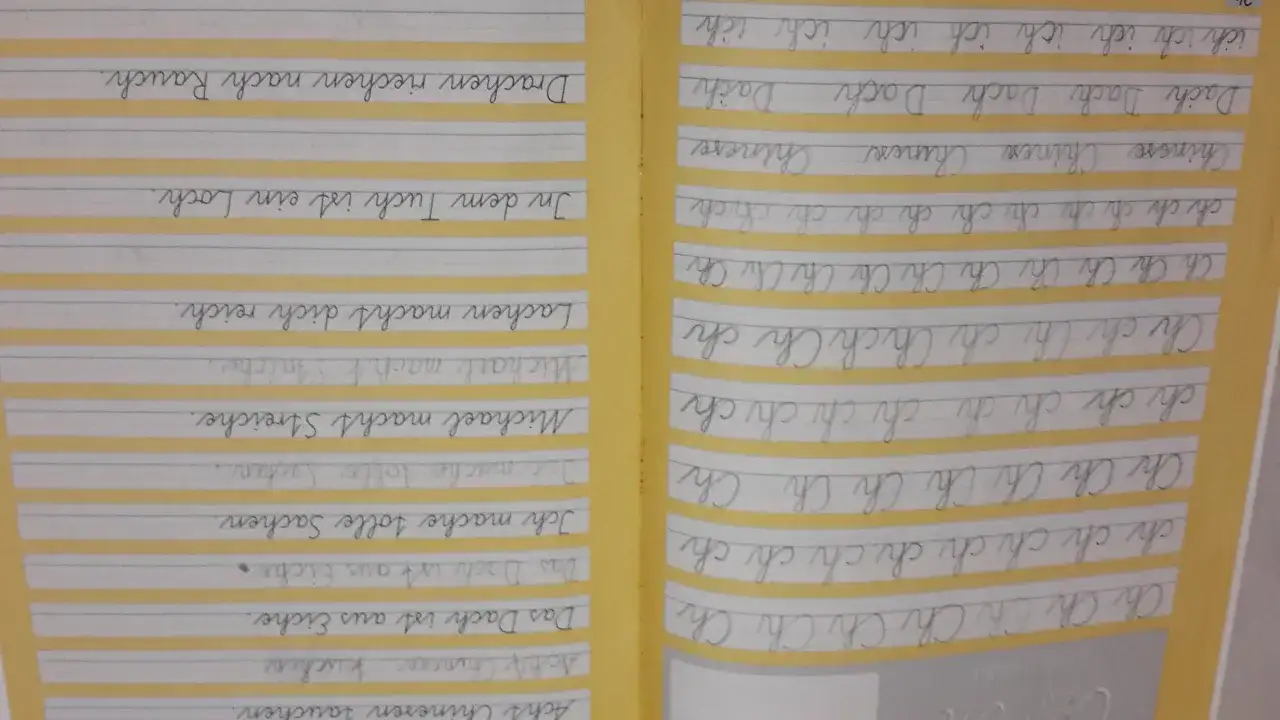 Ch Ch Ch Ch Ch Ch Ch Ch Ch
ch ch ch ch ch ch ch ch ch ch
Ch Ch Ch Ch Ch Ch Ch Ch Ch
ch ch ch ch ch ch ch ch ch ch
Ch ch Ch ch Ch ch Ch ch Ch ch
Ch Ch Ch Ch Ch Ch Ch Ch Ch Ch Ch Ch
ch ch ch ch ch ch ch ch ch ch ch ch
Chinese Chines Chinese Chines Chinese
Dach Dach Dach Dach Dach Dach Dach
ich ich ich ich ich ich ich ich ich ich
Acht Chinesen tauchen.
Acht Chinesen tauchen
Das Dach ist aus Eiche.
Das Dach ist aus Eiche.
Ich mache tolle Sachen.
Ich mache tolle Sachen.
Michael macht Streiche.
Michael macht Streiche.
Lachen macht dich reich.
In dem Tuch ist ein Loch.
Drachen riechen nach Rauch.